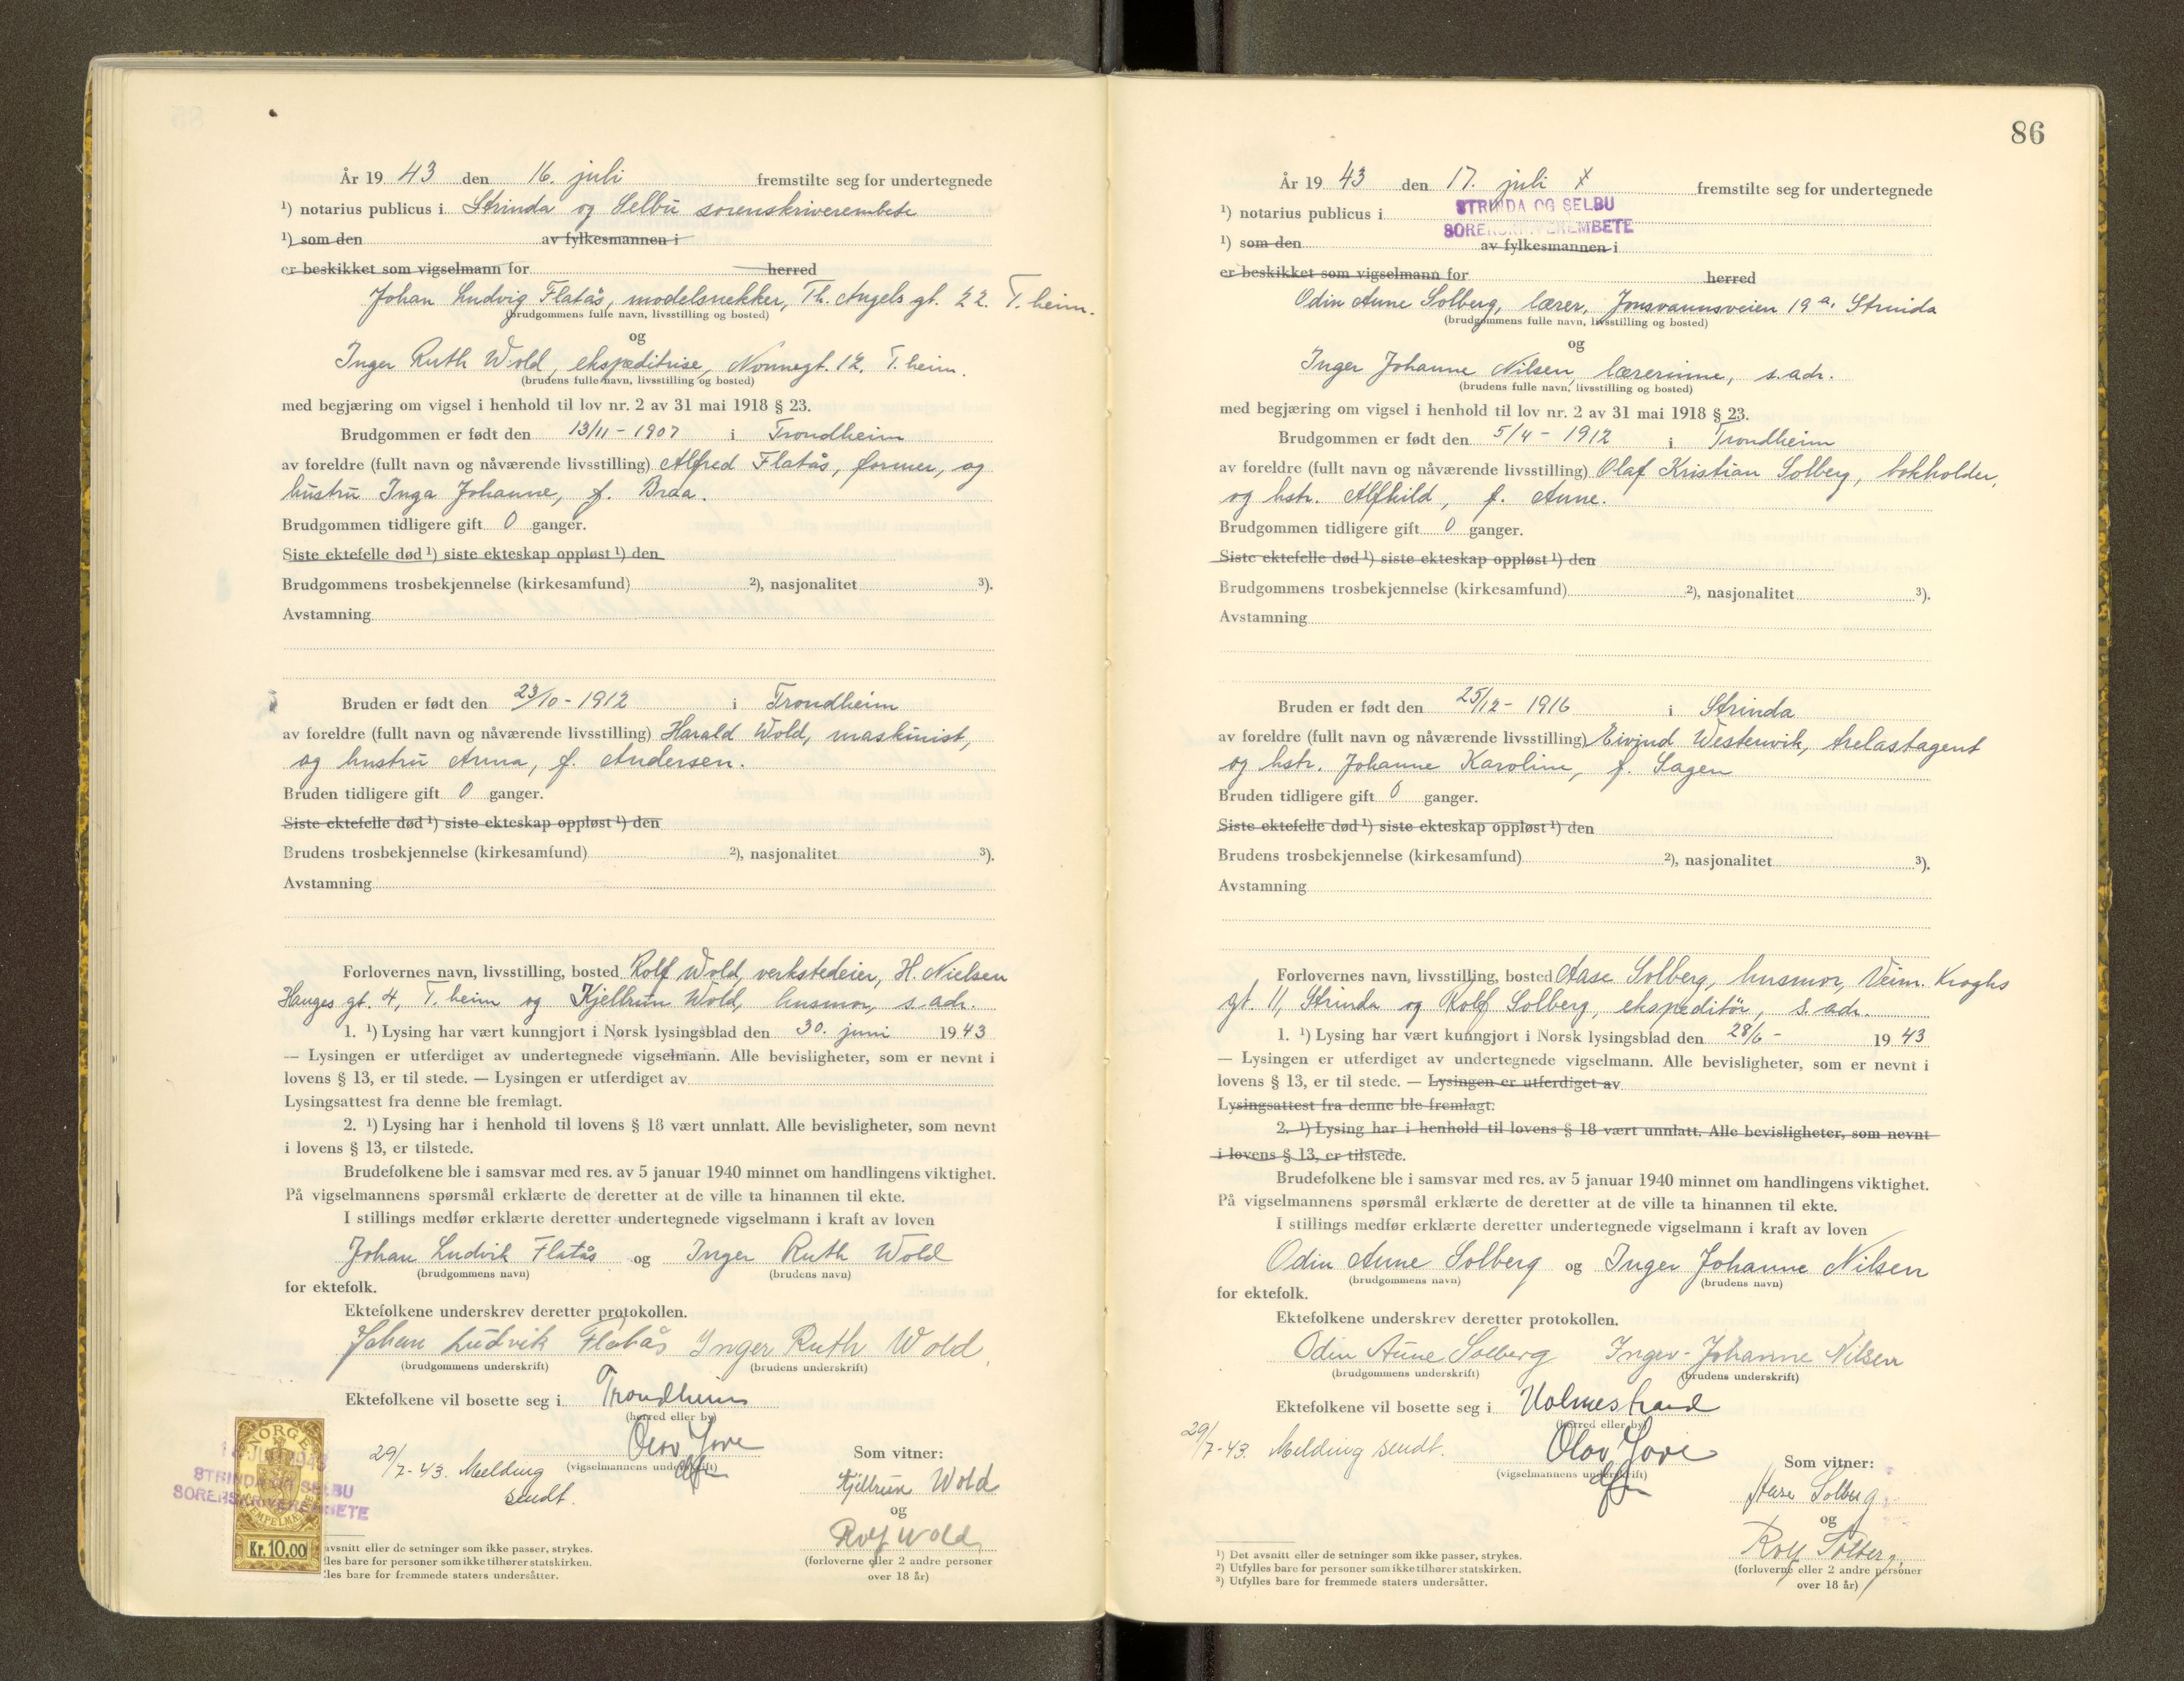 År 19 43 den 16. juli fremstilte seg for undertegnede
¹) notarius publicus i Strinda og Selbu sorenskriverembete
¹) som den av fylkesmannen i
er beskikket som vigselmann for herred
Johan Ludvig Flatås, modelsnekker, Th. Angels gt. 22. T.heim.
(brudgommens fulle navn, livsstilling og bosted)
og
Inger Ruth Wold, ekspeditrise, Nonnegt. 12. T.heim.
(brudens fulle navn, livsstilling og bosted)
med begjæring om vigsel i henhold til lov nr. 2 av 31 mai 1918 § 23.
Brudgommen er født den 13/11 - 1907 i Trondheim
av foreldre (fullt navn og nåværende livsstilling) Alfred Flatås, former, og
hustru Inga Johanne, f. Braa.
Brudgommen tidligere gift 0 ganger.
Siste ektefelle død ¹) siste ekteskap oppløst ¹) den
Brudgommens trosbekjennelse (kirkesamfund) ²), nasjonalitet ³).
Avstamning
Bruden er født den 23/10 - 1912 i Trondheim
av foreldre (fullt navn og nåværende livsstilling) Harald Wold, maskinist,
og hustru Anna, f. Andersen.
Bruden tidligere gift 0 ganger.
Siste ektefelle død ¹) siste ekteskap oppløst ¹) den
Brudens trosbekjennelse (kirkesamfund) ²), nasjonalitet ³).
Avstamning
Forlovernes navn, livsstilling, bosted Rolf Wold, verkstedeier, H. Nielsen
Hauges gt. 4, T.heim og Kjellrun Wold, husmor, s. adr.
1. ¹) Lysing har vært kunngjort i Norsk lysingsblad den 30. juni 19 43
— Lysingen er utferdiget av undertegnede vigselmann. Alle bevisligheter, som er nevnt i
lovens § 13, er til stede. — Lysingen er utferdiget av
Lysingsattest fra denne ble fremlagt.
2. ¹) Lysing har i henhold til lovens § 18 vært unnlatt. Alle bevisligheter, som nevnt
i lovens § 13, er tilstede.
Brudefolkene ble i samsvar med res. av 5 januar 1940 minnet om handlingens viktighet.
På vigselmannens spørsmål erklærte de deretter at de ville ta hinannen til ekte.
I stillings medfør erklærte deretter undertegnede vigselmann i kraft av loven
Johan Ludvik Flatås og Inger Ruth Wold
(brudgommens navn) (brudens navn)
for ektefolk.
Ektefolkene underskrev deretter protokollen.
Johan Ludvik Flatås Inger Ruth Wold
(brudgommens underskrift) (brudens underskrift)
Ektefolkene vil bosette seg i Trondheim
(herred eller by)
29/7-43. Melding sendt.
(vigselmannens underskrift)
Som vitner:
Kjellrun Wold
og
Rolf Wold
(forloverne eller 2 andre personer
over 18 år)
NORGE
STRINDA OG SELBU
SORENSKRIVEREMBETE
Kr. 10.00
avsnitt eller de setninger som ikke passer, strykes.
lles bare for personer som ikke tilhører statskirken.
lles bare for fremmede staters undersåtter.
86
År 19 43 den 17. juli fremstilte seg for undertegnede
¹) notarius publicus i STRINDA OG SELBU
SORENSKRIVEREMBETE
¹) som den av fylkesmannen i
er beskikket som vigselmann for herred
Odin Aune Solberg, lærer, Jonsvannsveien 19 a. Strinda
(brudgommens fulle navn, livsstilling og bosted)
og
Inger Johanne Nilsen, lærerinne, s.adr.
(brudens fulle navn, livsstilling og bosted)
med begjæring om vigsel i henhold til lov nr. 2 av 31 mai 1918 § 23.
Brudgommen er født den 5/4 - 1912 i Trondheim
av foreldre (fullt navn og nåværende livsstilling) Olaf Kristian Solberg, bokholder,
og hstr. Alfhild, f. Aune.
Brudgommen tidligere gift 0 ganger.
Siste ektefelle død ¹) siste ekteskap oppløst ¹) den
Brudgommens trosbekjennelse (kirkesamfund) ²), nasjonalitet ³).
Avstamning
Bruden er født den 25/12 - 1916 i Strinda
av foreldre (fullt navn og nåværende livsstilling) Eivind Westenvik, trelastagent
og hstr. Johanne Karoline, f. Sagen
Bruden tidligere gift 0 ganger.
Siste ektefelle død ¹) siste ekteskap oppløst ¹) den
Brudens trosbekjennelse (kirkesamfund) ²), nasjonalitet ³).
Avstamning
Forlovernes navn, livsstilling, bosted Aase Solberg, husmor, Veim. Kroghs
gt. 11, Strinda og Rolf Solberg, ekspeditør, s. adr.
1. ¹) Lysing har vært kunngjort i Norsk lysingsblad den 28/6 - 19 43
— Lysingen er utferdiget av undertegnede vigselmann. Alle bevisligheter, som er nevnt i
lovens § 13, er til stede. — Lysingen er utferdiget av
Lysingsattest fra denne ble fremlagt.
2. ¹) Lysing har i henhold til lovens § 18 vært unnlatt. Alle bevisligheter, som nevnt
i lovens § 13, er tilstede.
Brudefolkene ble i samsvar med res. av 5 januar 1940 minnet om handlingens viktighet.
På vigselmannens spørsmål erklærte de deretter at de ville ta hinannen til ekte.
I stillings medfør erklærte deretter undertegnede vigselmann i kraft av loven
Odin Aune Solberg og Inger Johanne Nilsen
(brudgommens navn) (brudens navn)
for ektefolk.
Ektefolkene underskrev deretter protokollen.
Odin Aune Solberg Inger-Johanne Nilsen
(brudgommens underskrift) (brudens underskrift)
Ektefolkene vil bosette seg i Holmestrand
(herred eller by)
29/7-43. Melding sendt.
(vigselmannens underskrift)
Som vitner:
Aase Solberg
og
Rolf Solberg
(forloverne eller 2 andre personer
over 18 år)
¹) Det avsnitt eller de setninger som ikke passer, strykes.
²) Utfylles bare for personer som ikke tilhører statskirken.
³) Utfylles bare for fremmede staters undersåtter.